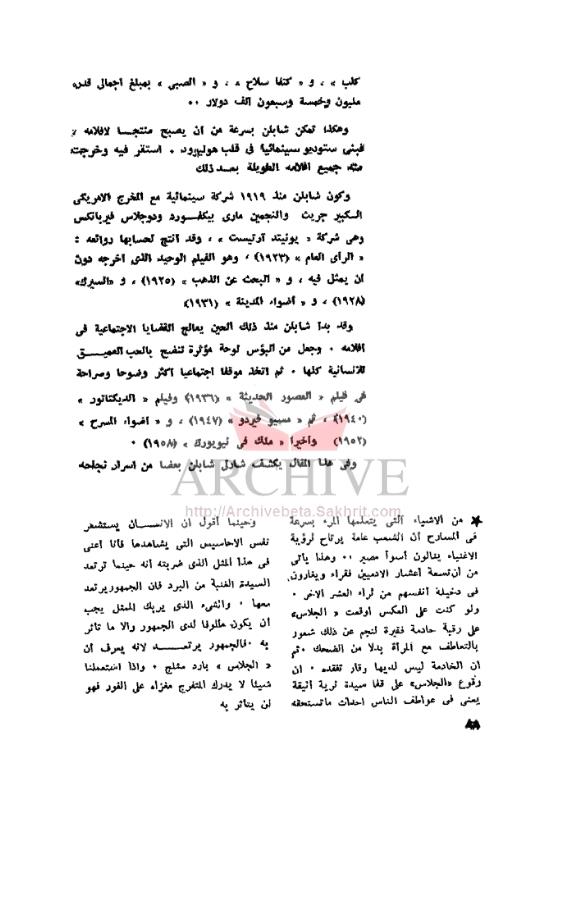 كلب » ، و « كتفا سلاح » ، و « الصبي » بمبلغ اجمالي قدره
مليون وخمسة وسبعون الف دولار ٠٠
وهكذا تمكن شابلن بسرعة من ان يصبح منتجا لافلامه ،
فبنى ستوديو سينمائيا في قلب هوليوود ، استقر فيه وخرجت
منه جميع افلامه الطويلة بعد ذلك
وكون شابلن منذ ١٩١٩ شركة سينمائية مع المخرج الامريكي
الكبير جريث والنجمين ماري بيكفورد ودوجلاس فيربانكس
وهي شركة « يونيتد آرتيست » ، وقد انتج لحسابها روائعه :
« الرأى العام » (١٩٢٣) ، وهو الفيلم الوحيد الذى اخرجه دون
ان يمثل فيه ، و « البحث عن الذهب » (١٩٢٥) ، و «السيرك»
(١٩٢٨) ، و « اضواء المدينة » (١٩٣١)
وقد بدأ شابلن منذ ذلك الحين يعالج القضايا الاجتماعية فى
افلامه ٠ وجعل من البؤس لوحة مؤثرة تنضح بالحب العميق
للانسانية كلها ٠ ثم اتخذ موقفا اجتماعيا اكثر وضوحا وصراحة
فى فيلم « العصور الحديثة » (١٩٣٦) وفيلم « الديكتاتور »
(١٩٤٠) ، ثم « مسيو فيردو » (١٩٤٧) ، و « اضواء المسرح »
(١٩٥٢) واخيرا « ملك فى نيويورك » (١٩٥٨) ٠
وفى هذا المقال يكشف شارل شابلن بعضا من اسرار نجاحه
ARCHIVE
http://Archivebeta.Sakhrit.com
★ من الاشياء التى يتعلمها المرء بسرعة
فى المسارح ان الشعب عامة يرتاح لرؤية
الاغنياء يلاقون أسوأ مصير ٠٠ وهذا يأتى
من ان تسعة أعشار الادميين فقراء ويغارون
فى دخيلة أنفسهم من ثراء العشر الاخر ٠
ولو كنت على العكس أوقعت « الجلاس»
على رقبة خادمة فقيرة لنجم عن ذلك شعور
بالتعاطف مع المرأة بدلا من الضحك ٠ ثم
ان الخادمة ليس لديها وقار تفقده ٠ ان
وقوع «الجلاس» على قفا سيدة ثرية أنيقة
يعنى فى عواطف الناس احداث ماتستحقه
وحينما أقول ان الانسان يستشعر
نفس الاحاسيس التى يشاهدها فانا أعنى
فى هذا المثل الذى ضربته أنه حينما ترتعد
السيدة الغنية من البرد فان الجمهور يرتعد
معها ٠ والشىء الذى يربك الممثل يجب
أن يكون مألوفا لدى الجمهور والا ما تأثر
به ٠ فالجمهور يرتعد لانه يعرف أن
« الجلاس » بارد مثلج ٠ واذا استعملنا
شيئا لا يدرك المتفرج مغزاه على الفور فهو
لن يتأثر به